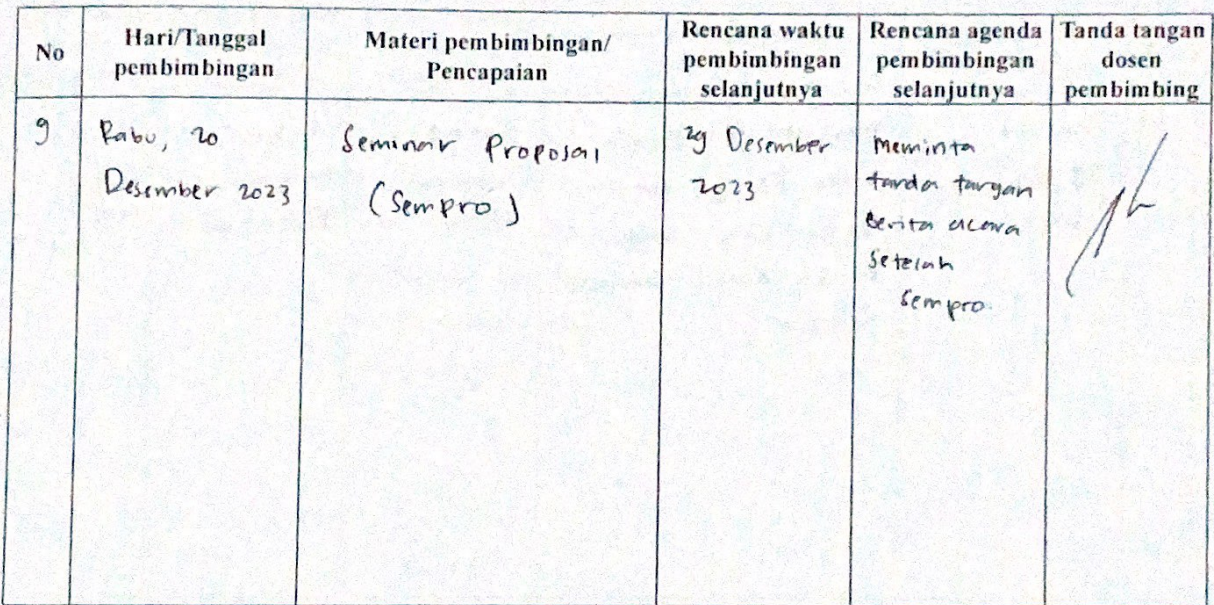 No
Hari/Tanggal
pembimbingan
Materi pembimbingan/
Pencapaian
Rencana waktu
pembimbingan
selanjutnya
Rencana agenda
pembimbingan
selanjutnya
Tanda tangan
dosen
pembimbing
9
Rabu, 20
Desember 2023
Seminar Proposal
(Sempro)
29 Desember
2023
Meminta
tanda tangan
Berita acara
Setelah
Sempro.